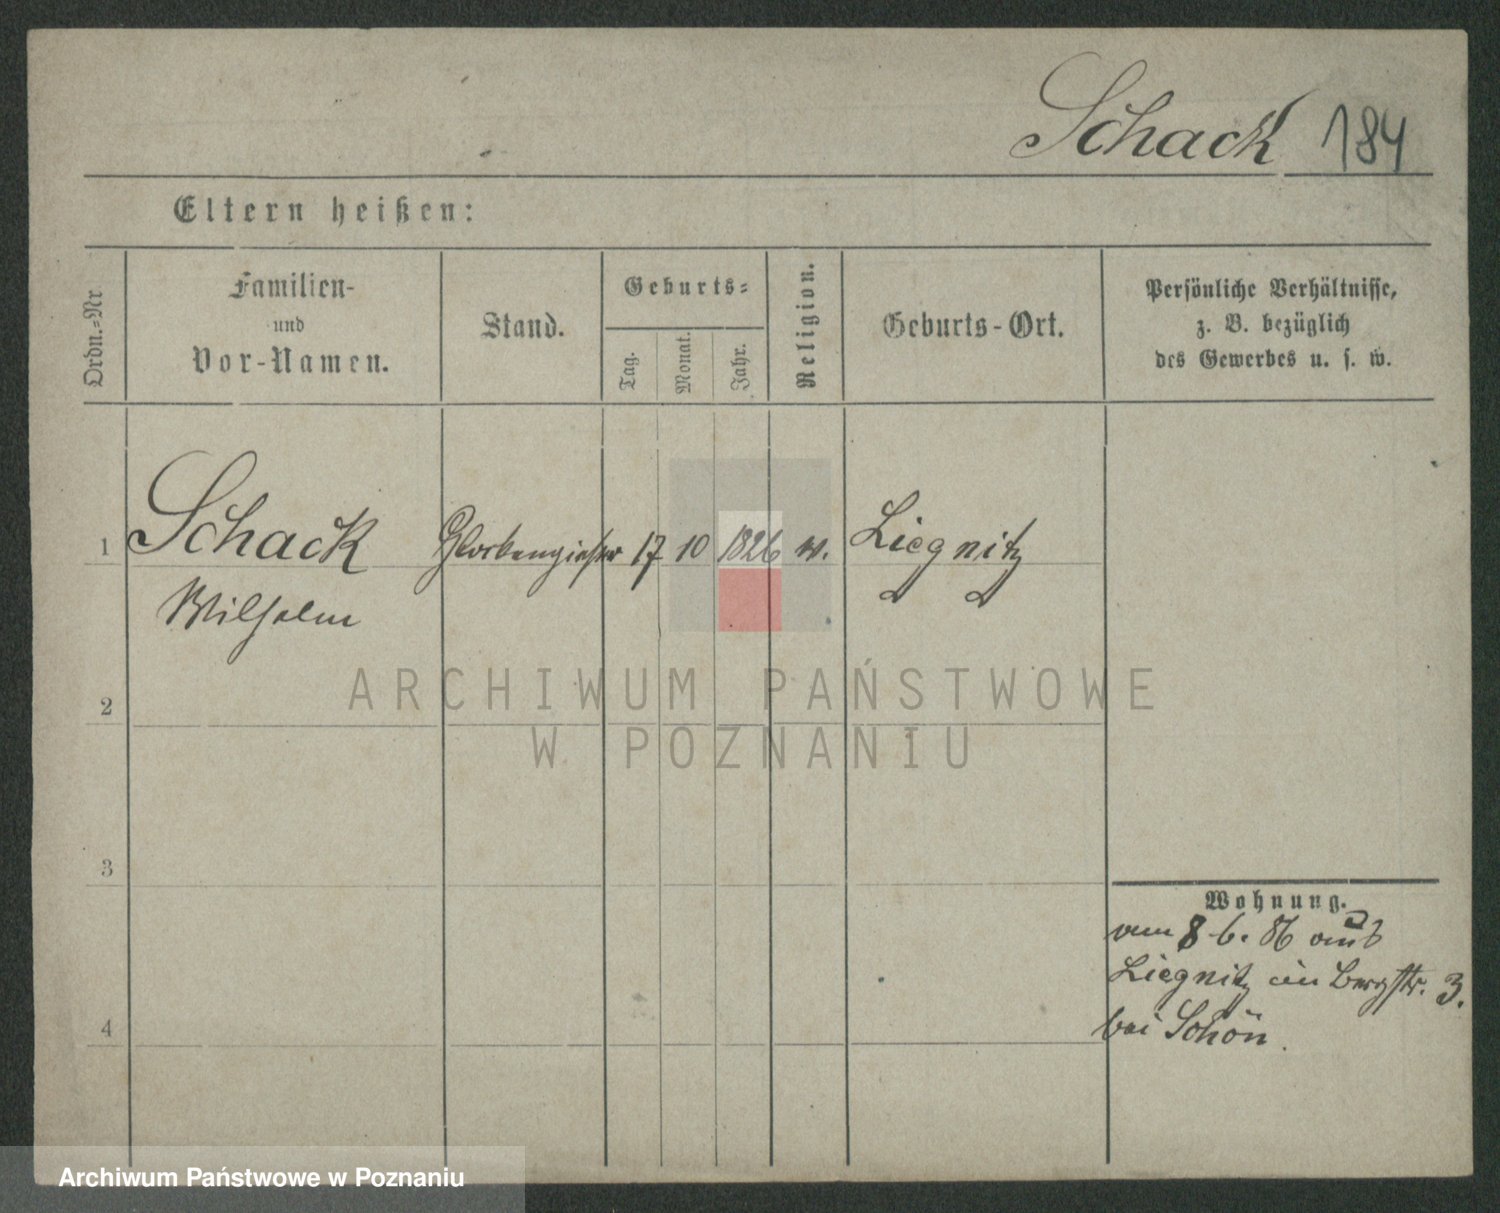 Schack 184
Eltern heißen:
Ordn.-Nr.
Familien-
und
Vor-Namen.
Stand.
Geburts-
Tag.
Monat.
Jahr.
Religion.
Geburts-Ort.
Persönliche Verhältnisse,
z. B. bezüglich
des Gewerbes u. s. w.
1 Schack Glockengießer 17 10 1826 Liegnitz
Wilhelm
2
3
4
Wohnung.
vom 8 6. 86 aus
Liegnitz in Bergstr. 3.
bei Schön.
ARCHIWUM PAŃSTWOWE
W POZNANIU
Archiwum Państwowe w Poznaniu